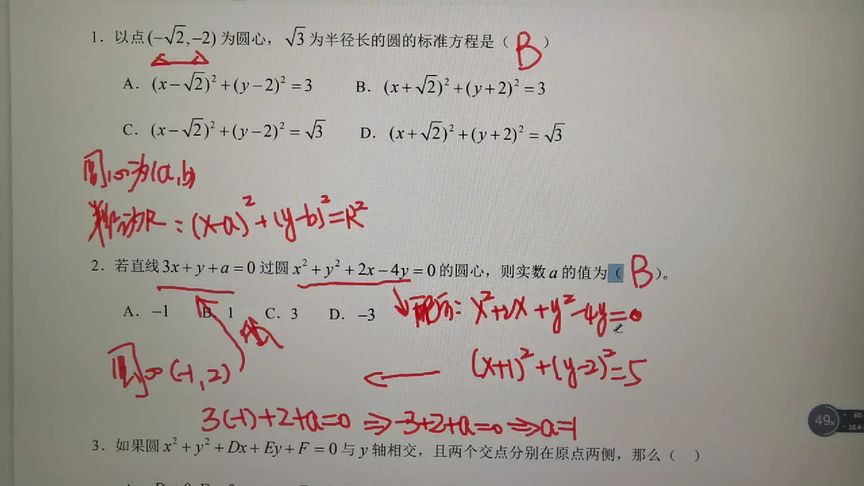 1. 以点(−√2,−2)为圆心，√3为半径长的圆的标准方程是（ B ）
A. (x−√2)²+(y−2)²=3 B. (x+√2)²+(y+2)²=3
C. (x−√2)²+(y−2)²=√3 D. (x+√2)²+(y+2)²=√3
圆心为(a,b)
半径为R：(x-a)²+(y-b)²=R²
2. 若直线3x+y+a=0过圆x²+y²+2x−4y=0的圆心，则实数a的值为（ B ）。
A. −1 B. 1 C. 3 D. −3
配方：x²+2x+y²-4y=0
圆心(-1,2)
(x+1)²+(y-2)²=5
3(-1)+2+a=0⇒-3+2+a=0⇒a=1
3. 如果圆x²+y²+Dx+Ey+F=0与y轴相交，且两个交点分别在原点两侧，那么（ ）
49%